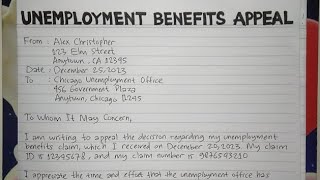 UNEMPLOYMENT BENEFITS APPEAL
From : Alex Christopher
123 Elm Street
Anytown, CA 12345
Date : December 25, 2023
To : Chicago Unemployment Office
456 Government Plaza
Anytown, Chicago 12245
To Whom It May Concern,
I am writing to appeal the decision regarding my unemployment
benefits claim, which I received on December 20, 2023. My claim
ID is 12345678, and my claim number is 9876543210
I appreciate the time and effort that the unemployment office has